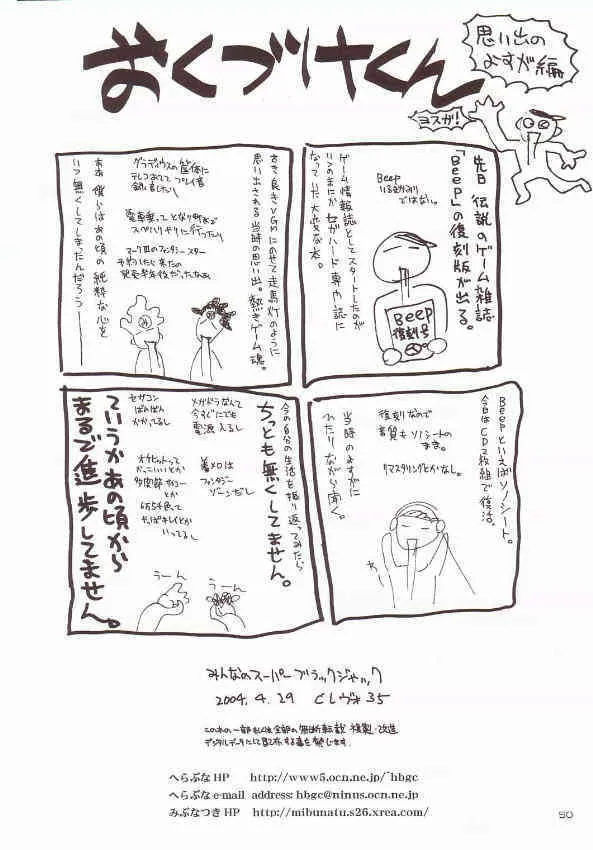 おくづけくん
思い出の
よすが編
ヨスガ!
先日 伝説のゲーム雑誌
「Beep」の復刻版が出る。
Beep
いるかみり
ではない。
ゲーム情報誌としてスタートしたのが
いつのまにかセガハード専門誌に
なっていた大変な本。
Beep
復刻号
Beepといえばソノシート。
今回はCD2枚組で復活。
復刻なので
音質もソノシートの
まま。
リマスタリングとかなし。
当時のよすがに
ふれたりながら聞く。
古き良きVGMにのせて走馬灯のように
思い出される当時の思い出。熱きゲーム魂。
グラディウスの筐体に
テレコあてて プレイ音
録音したり
電車乗って となり町まで
スペハリやりに行ったり
マークⅢのファンタシースター
予約したら来たの
発売半年後だったなぁ
ああ 僕らはあの頃の純粋な心を
いつ無くしてしまったんだろう———
今の自分の生活を振り返ってみたら
ちっとも無くしてません。
メガドラなんて
今すぐにでも
電源入るし
セガコン
ばんばん
かかってるし
着メロは
ファンタジー
ゾーンだし
オパオパって
かっこいいとか
多関節
とか
6万5千色って
やっぱキレイとか
いってるし
ていうかあの頃から
まるで進歩してません。
うーん
うーん
みんなのスーパーブラックジャック
2004.4.29 とレヴォ35
この本の一部もしくは全部の無断転載 複製・改造
デジタルデータにして配布する事を禁じます。
へらぶなHP http://www5.ocn.ne.jp/~hbgc
へらぶなe-mail address: hbgc@ninus.ocn.ne.jp
みぶなつきHP http://mibunatu.s26.xrea.com/
50